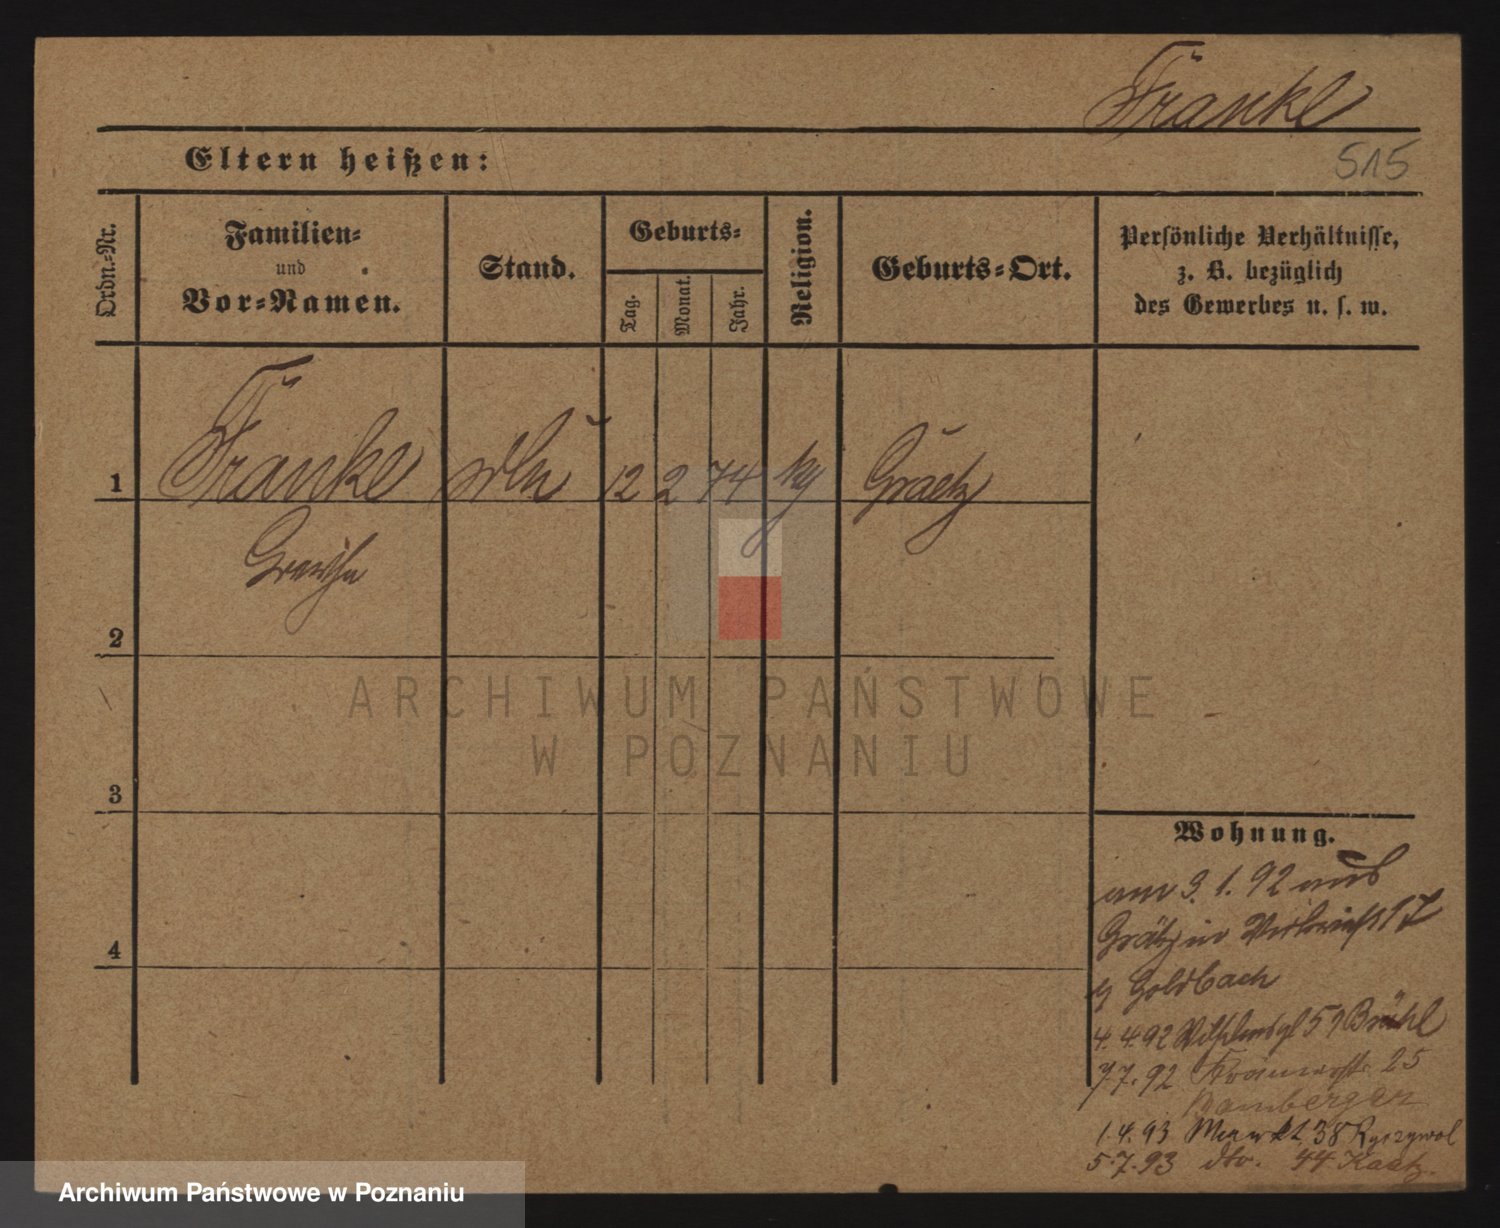 Franke
515
Eltern heißen:
Ordn.-Nr.
Familien-
und
Vor-Namen.
Stand.
Geburts-
Tag.
Monat.
Jahr.
Religion.
Geburts-Ort.
Persönliche Verhältnisse,
z. B. bezüglich
des Gewerbes u. s. w.
1 Franke 12 2 74 Graetz
2
3
4
ARCHIWUM PAŃSTWOWE
W POZNANIU
Wohnung.
am 3. 1. 92 aus
Grätz 17
Goldbach
4. 4. 92 5 Brühl
7. 7. 92 25
Bamberger
1. 4. 93 Markt 38 Ryczywol
5. 7. 93 dto. 44 Kaatz.
Archiwum Państwowe w Poznaniu